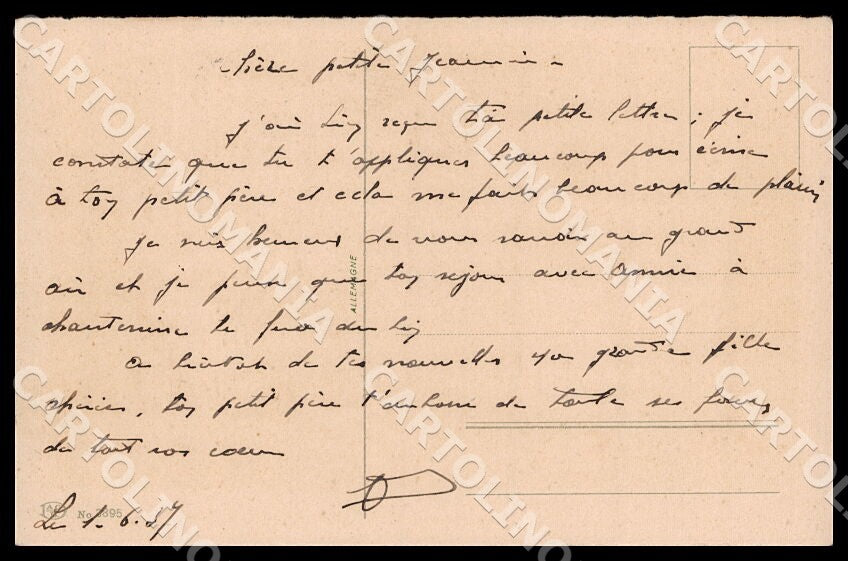 Chère petite Jeannine
J'ai bien reçu ta petite lettre ; je
constate que tu t'appliques beaucoup pour écrire
à ton petit père et cela me fait beaucoup de plaisir
Je suis heureux de vous savoir au grand
air et je pense que ton séjour avec Annie à
te fera du bien
A bientôt de tes nouvelles ma grande fille
chérie, ton petit père t'embrasse de toute ses forces
de tout son coeur
Le 1.6.57
No 3895
ALLEMAGNE
CARTOLINOMANIA
CARTOLINOMANIA
CARTOLINOMANIA
CARTOLINOMANIA